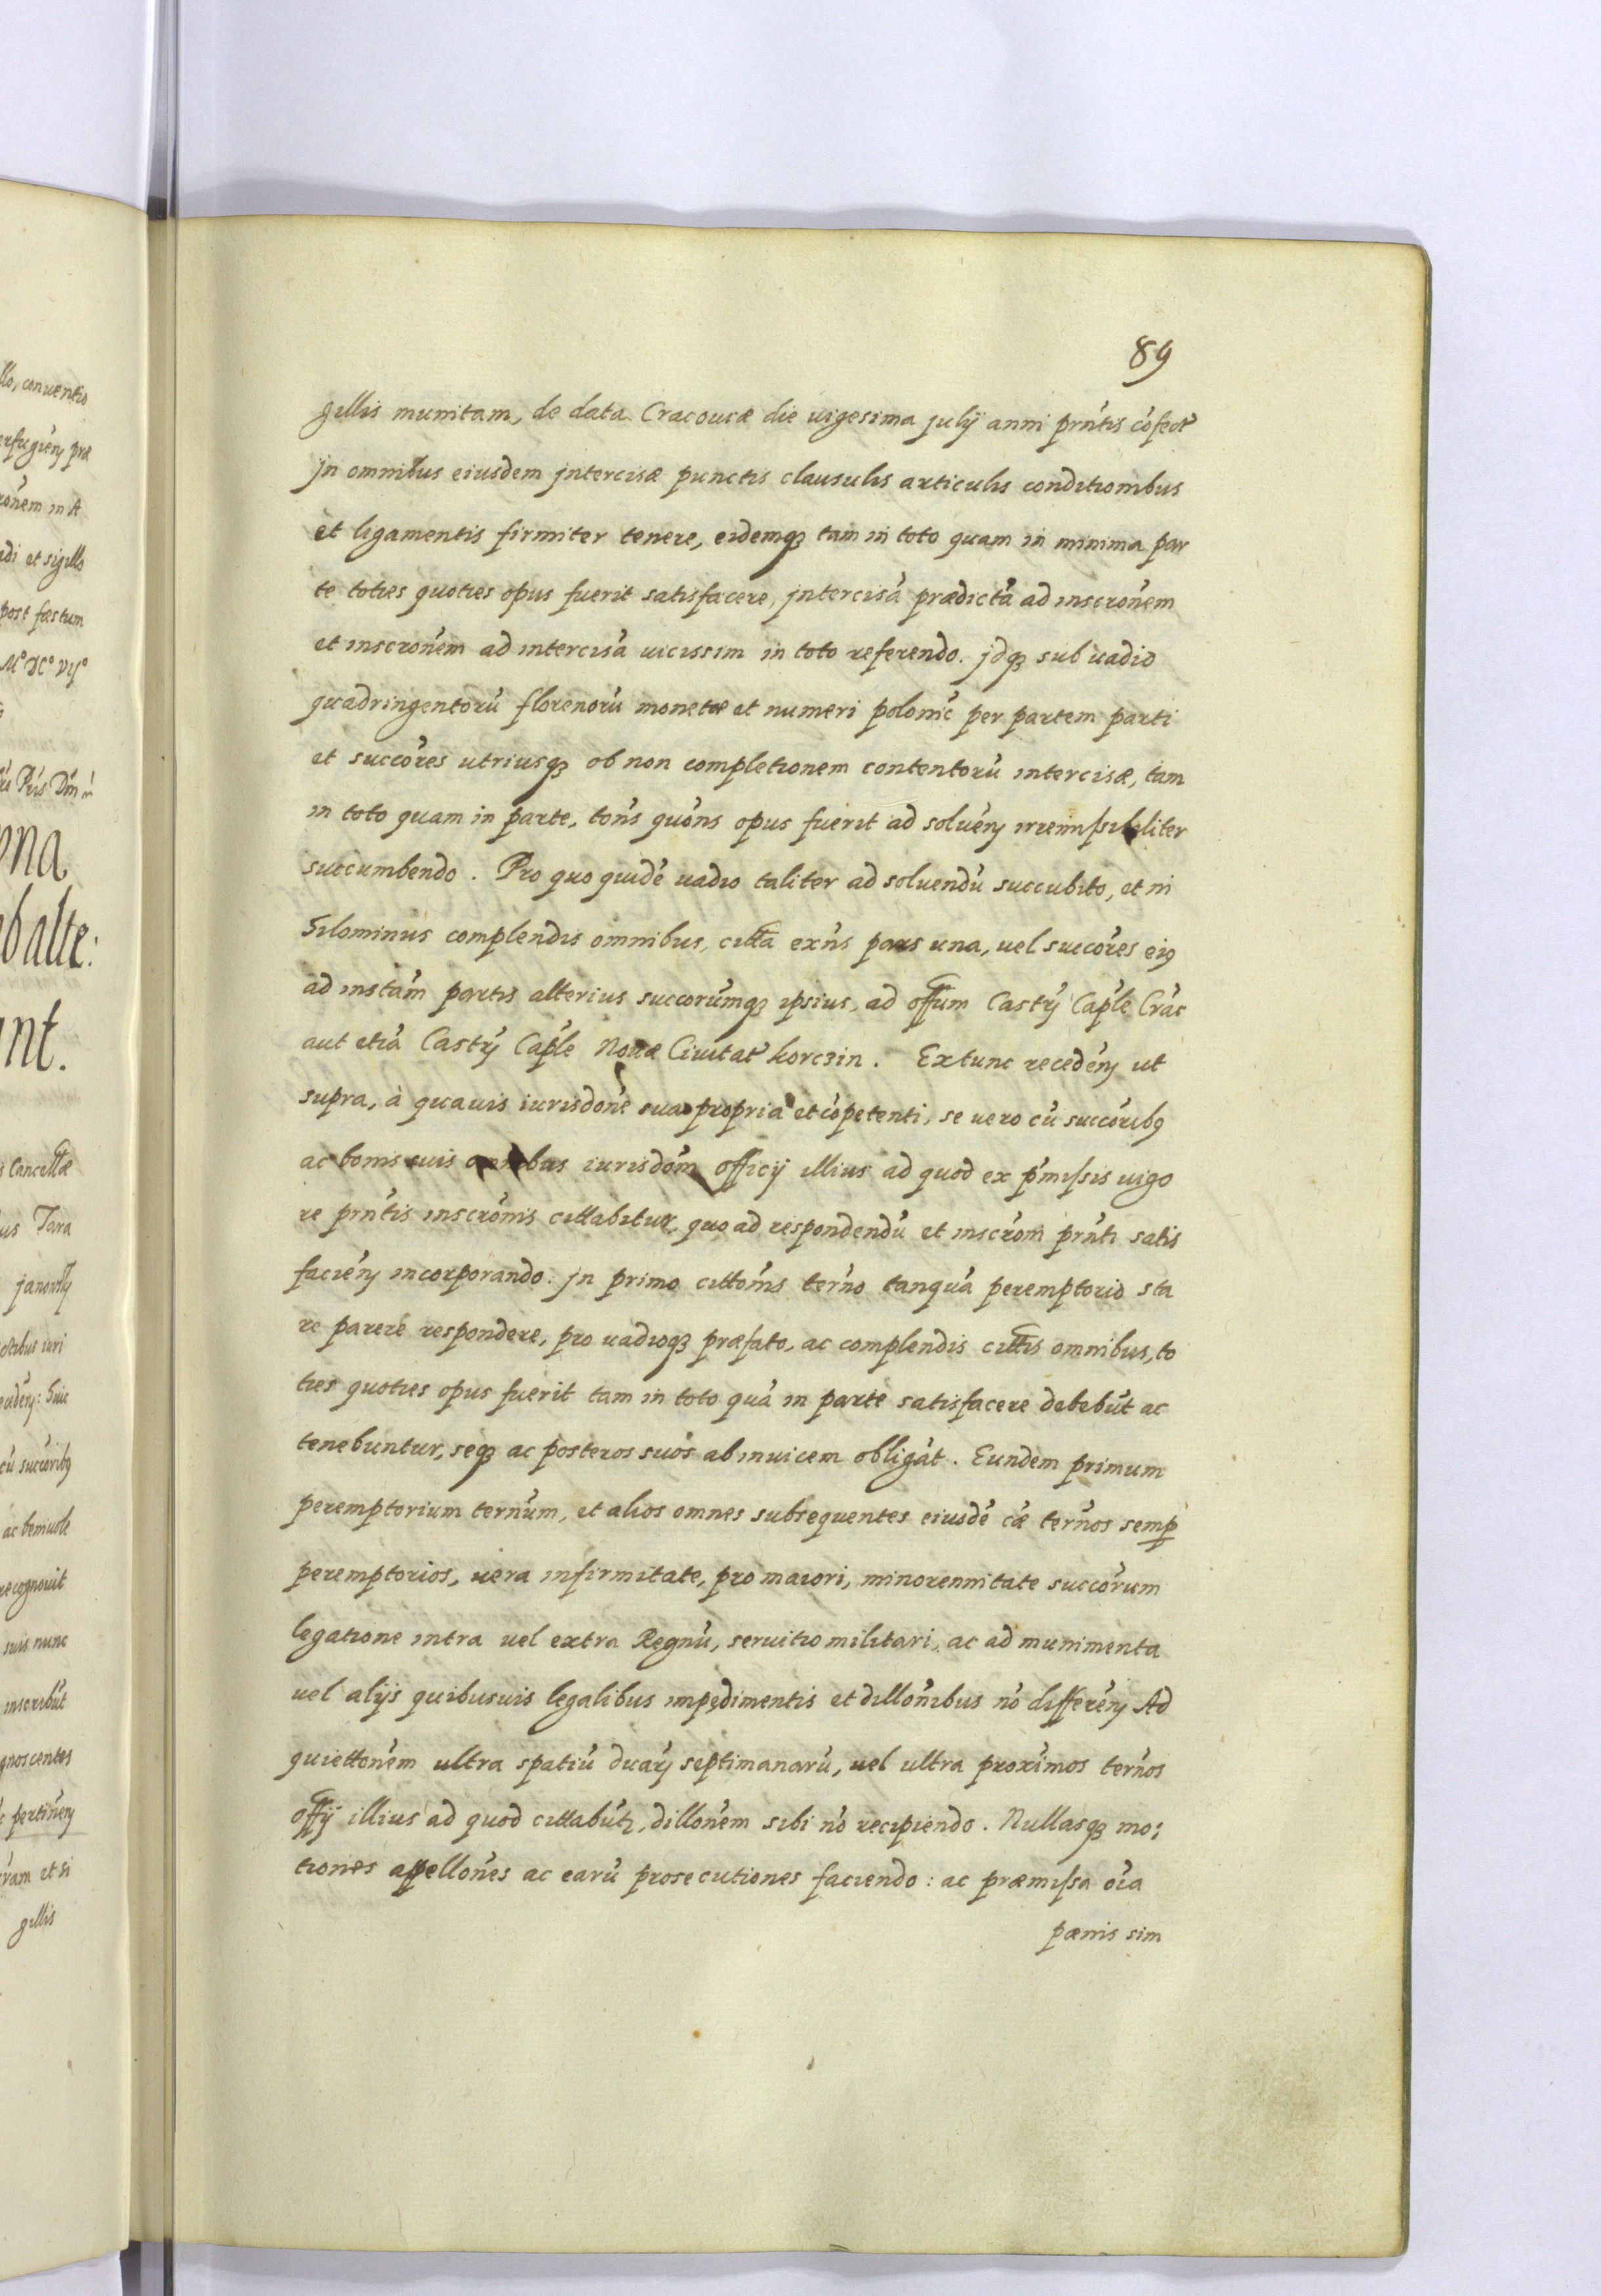 89
gillis munitam, de data Cracouiæ die uigesima julij anni prńtis cófect
jn omnibus eiusdem jntercisæ punctis clausulis articulis conditionibus
et ligamentis firmiter tenere, eidemq3 tam in toto quam in minima par
te toties quoties opus fuerit satisfacere, jntercisá prædictá ad inscrońem
et inscrońem ad intercisá uicissim in toto referendo. jdq3 sub uadio
quadringentorú florenorú monetæ et numeri polonić per partem parti
et succóres utriusq3 ob non completionem contentorú intercisæ, tam
in toto quam in parte, tońs quońs opus fuerit ad soluéń irremissibiliter
succumbendo. Pro quo quidé uadio taliter ad soluendú succubito, et ni
hilominus complendis omnibus, citta exńs pars una, uel succóres ei9
ad instám partis alterius succorúmq3 ipsius, ad offum Castrj Caple Crác
aut etiá Castrj Caple Nouæ Ciuitat korczin. Extunc recedéń ut
supra, à quauis iurisdoné sua propria et cópetenti, se uero cú succórib9
ac bonis suis omnibus iurisdóm officij illius ad quod ex pmissis uigo
re prńtis inscrónis cittabitur quo ad respondendú et inscróni prńti satis
faciéń incorporando. jn primo cittónis terńo tanquá peremptorio sta
re parere respondere, pro uadioq3 præfato, ac complendis cittis omnibus, to
ties quoties opus fuerit tam in toto quá in parte satisfacere debebút ac
tenebuntur, seq3 ac posteros suos ab inuicem obligát. Eundem primum
peremptorium ternúm, et alios omnes subsequentes eiusdé cæ terńos semp
peremptorios, uera infirmitate, pro maiori, minorennitate succórum
legatione intra uel extra Regnú, seruitio militari, ac ad munimenta
uel alijs quibusuis legalibus impedimentis et dillońibus nó differéń Ad
quiettońem ultra spatiú duarj septimanarú, uel ultra proximos terńos
offij illius ad quod cittabútr, dillońem sibi nó recipiendo. Nullasq3 mo:
tiones appellońes ac earú prosecutiones faciendo: ac præmissa oía
pænis sim